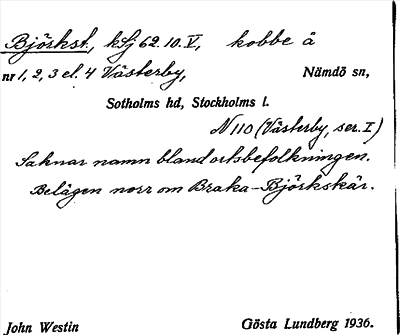 Björkst., kSj 62. 10. V, kobbe å
nr 1, 2, 3 el. 4 Västerby, Nämdö sn,
Sotholms hd, Stockholms l.
N 110 (Västerby, ser. I)
Saknar namn bland ortsbefolkningen.
Belägen norr om Braka-Björkskär.
John Westin Gösta Lundberg 1936.